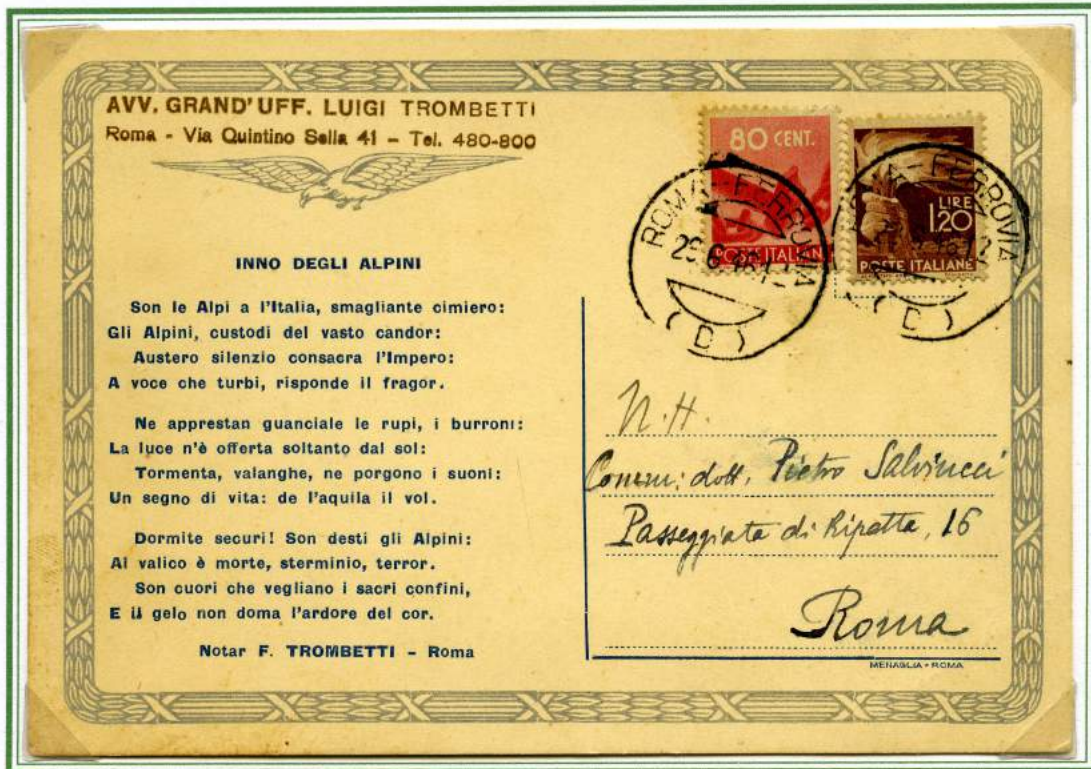 AVV. GRAND'UFF. LUIGI TROMBETTI
Roma - Via Quintino Sella 41 - Tel. 480-800
INNO DEGLI ALPINI
Son le Alpi a l'Italia, smagliante cimiero:
Gli Alpini, custodi del vasto candor:
Austero silenzio consacra l'Impero:
A voce che turbi, risponde il fragor.
Ne apprestan guanciale le rupi, i burroni:
La luce n'è offerta soltanto dal sol:
Tormenta, valanghe, ne porgono i suoni:
Un segno di vita: de l'aquila il vol.
Dormite securi! Son desti gli Alpini:
Al valico è morte, sterminio, terror.
Son cuori che vegliano i sacri confini,
E il gelo non doma l'ardore del cor.
Notar F. TROMBETTI - Roma
80 CENT.
POSTE ITALIAN
LIRE
1.20
POSTE ITALIANE
ROMA-FERROVIA
(D)
FERROVIA
(D)
N.H.
Comm: dott. Pietro Salvinucci
Passeggiata di Ripetta, 16
Roma
MENAGLIA - ROMA